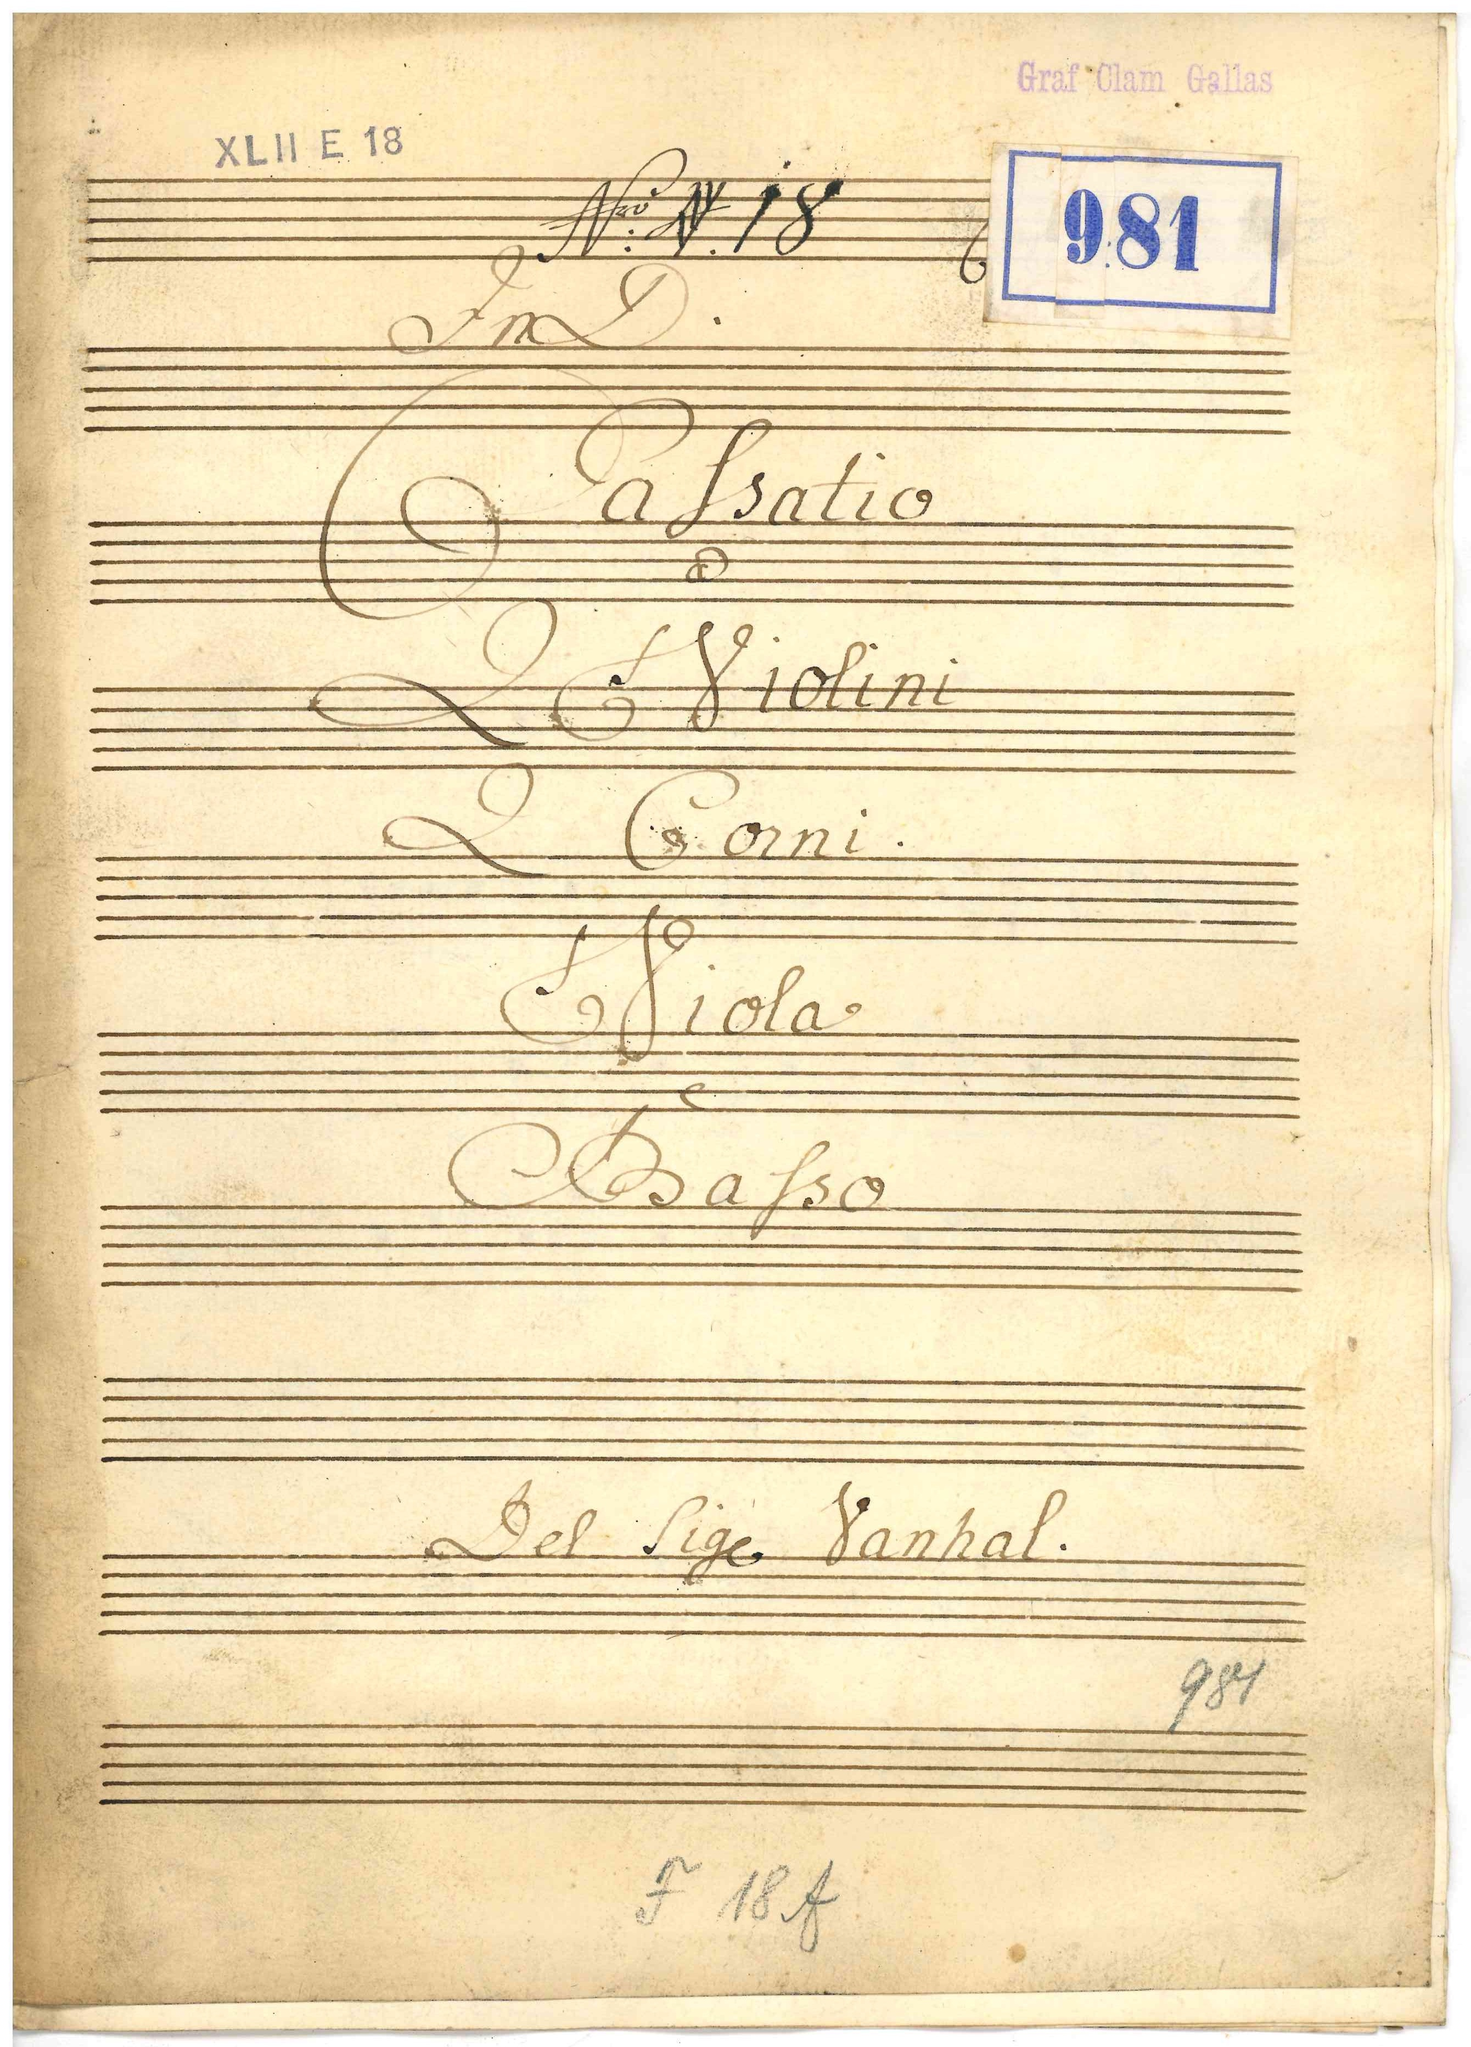 Graf Clam Gallas
XLII E 18
Nro: 18
981
In D.
Cassatio
a
2 Violini
2 Corni.
Viola
e
Basso
Del Sige Vanhal.
981
F 18